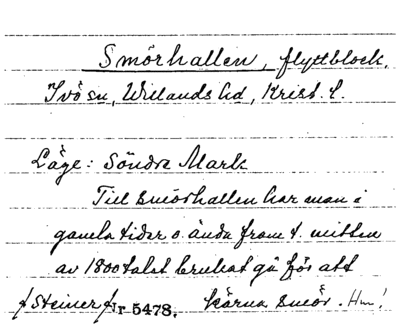 Smörhallen, flyttblock.
Ivö sn, Willands hd, Krist. l.
Läge: Söndre Mark
Till smörhallen har man i
gamla tider o. ända fram t. mitten
av 1800talet brukat gå för att
kärna smör. Hm!
f Steiner f Nr 5478.